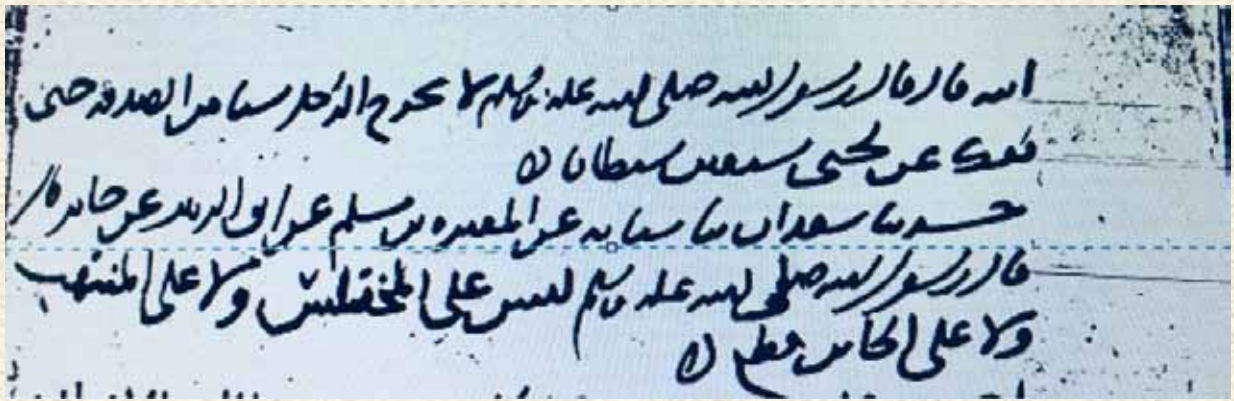 ابيه قال قال رسول الله صلى الله عليه وسلم لا يخرج الرجل شيئا من الصدقة حتى
يفك عن لحيى سبعين شيطانا
حدثنا سعدان نا شبابه عن المغيره بن مسلم عن ابى الزبير عن جابر
قال رسول الله صلى الله عليه وسلم ليس على المختلس ولا على المنتهب
ولا على الخاين قطع